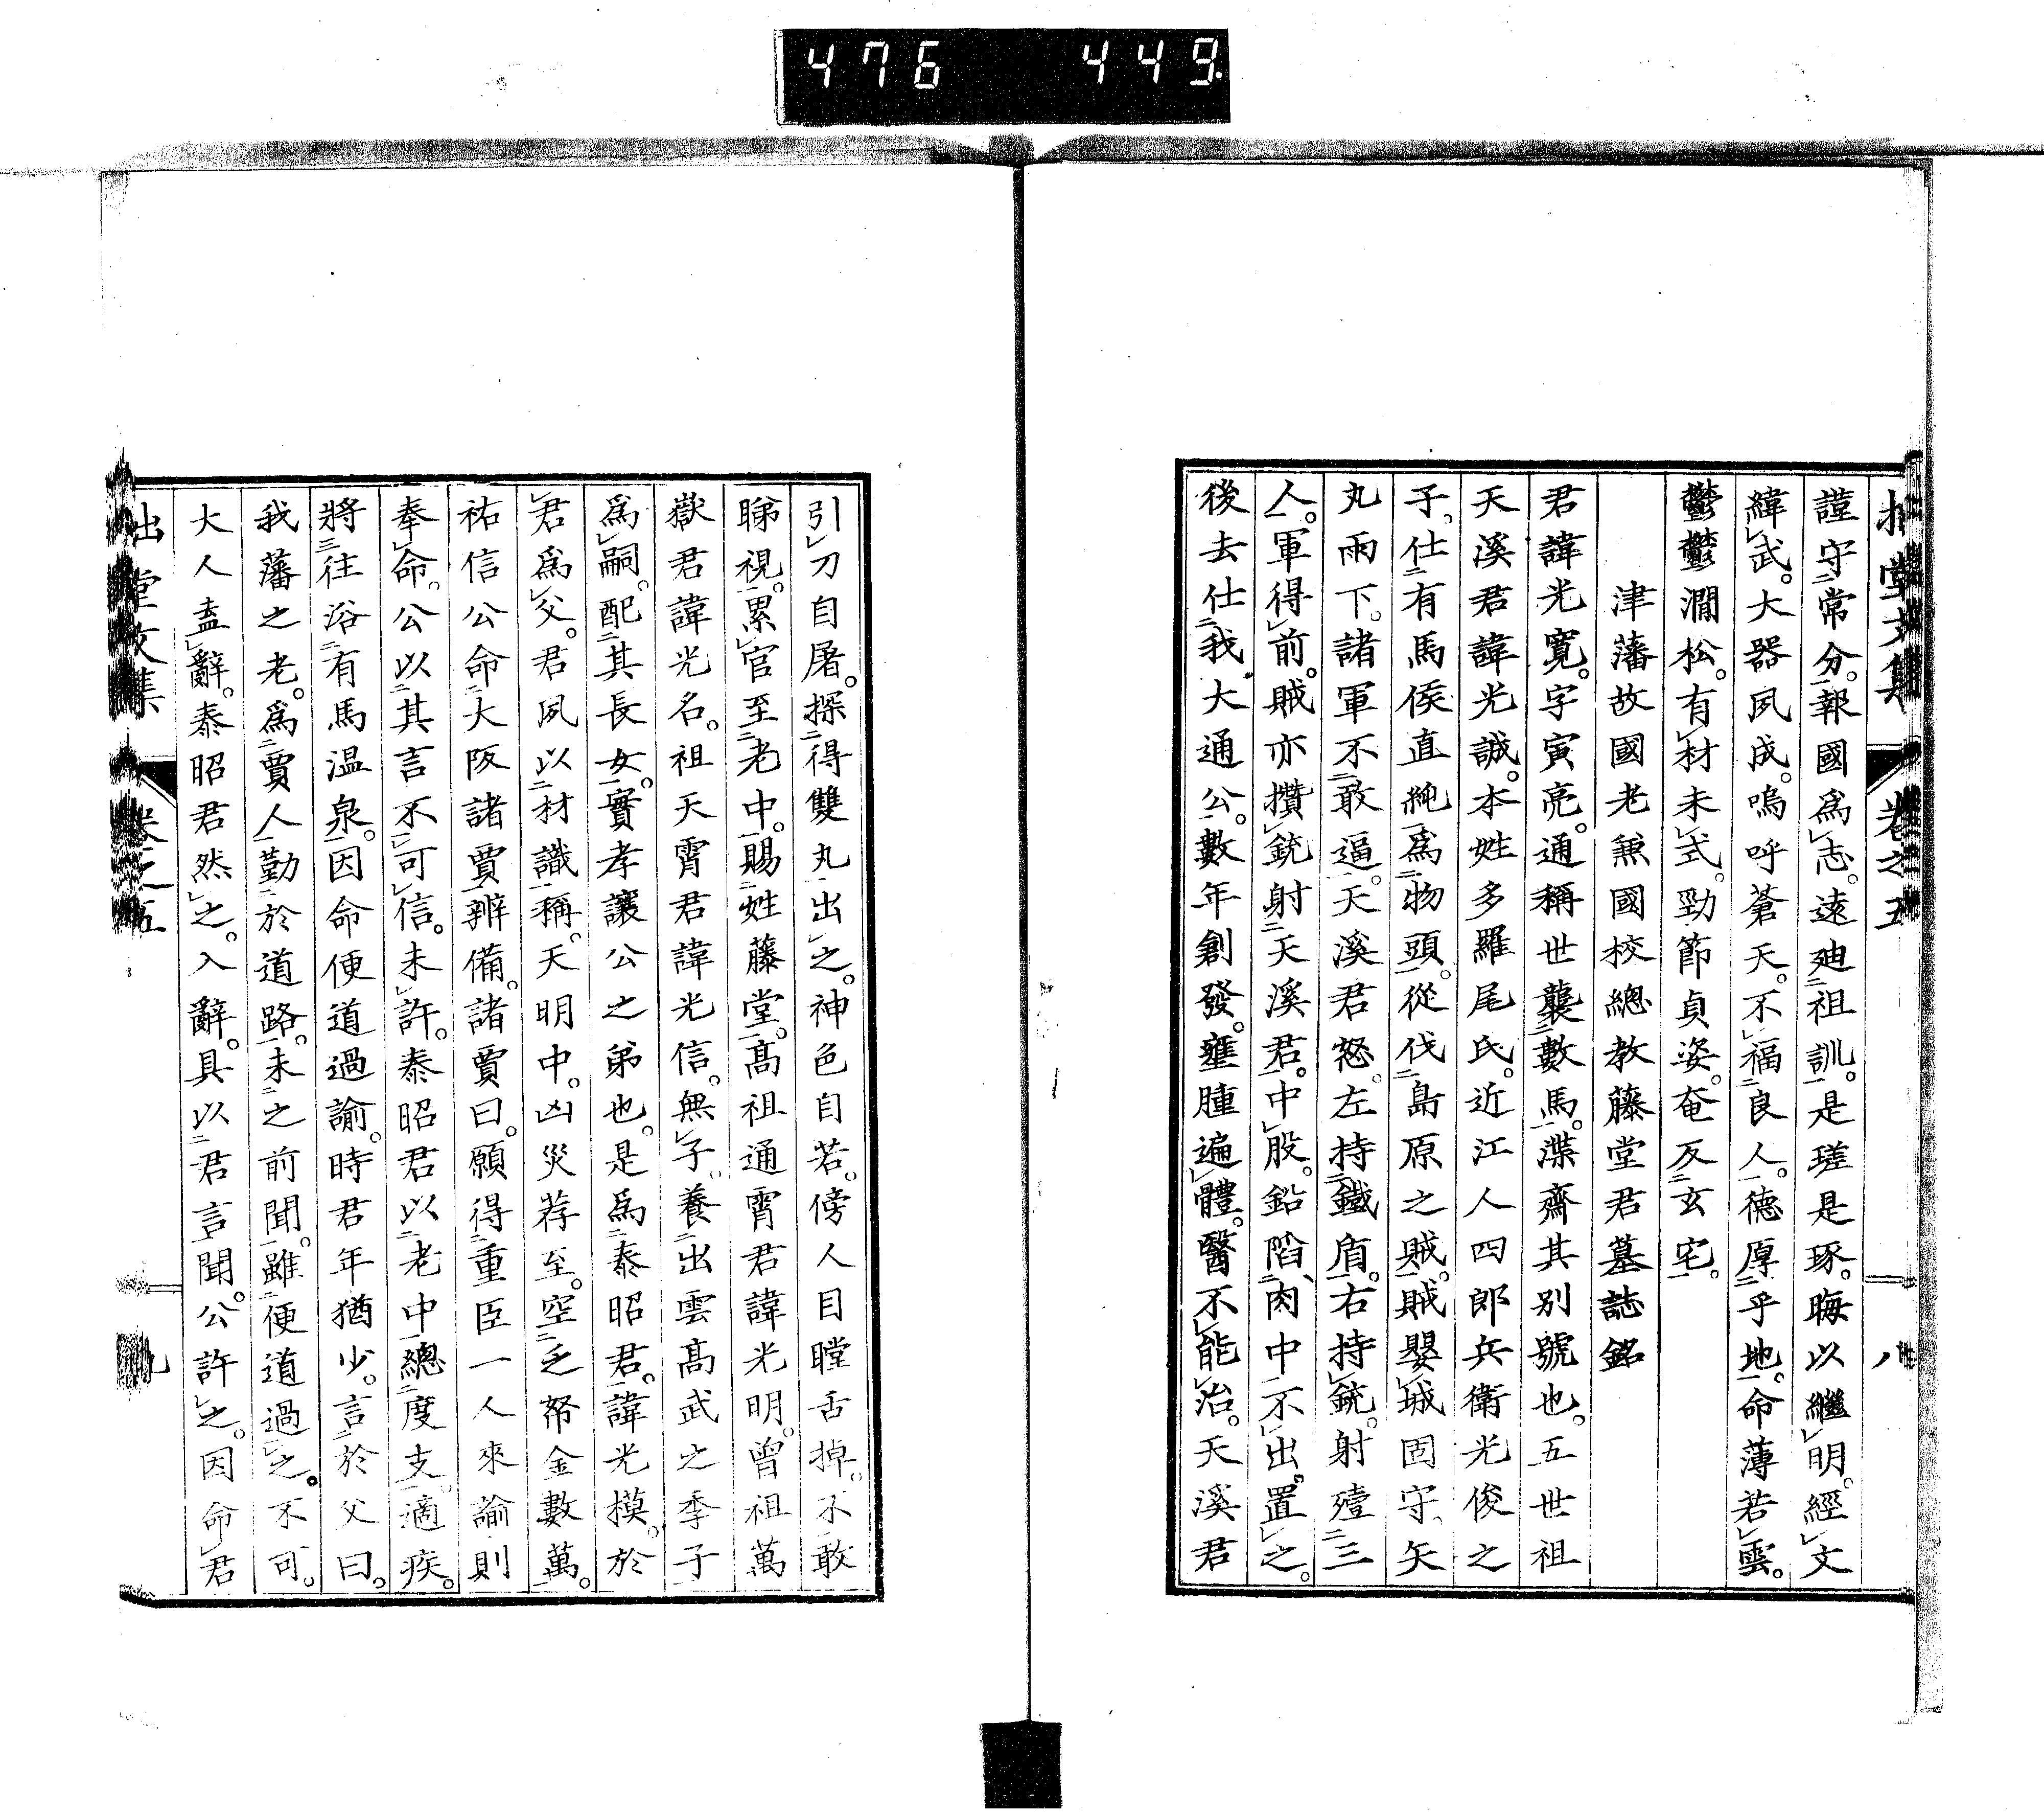 476 449.
拙堂文集 卷之五 八
謹守常分。報國爲志。遠廸祖訓。是瑳是琢。晦以繼明。經文
緯武。大器夙成。嗚呼蒼天。不福良人。德厚乎地。命薄若雲。
鬱鬱澗松。有材未式。勁節貞姿。奄反玄宅。
津藩故國老兼國校總教藤堂君墓誌銘
君諱光寬。字寅亮。通稱世襲數馬。渫齋其別號也。五世祖
天溪君諱光誠。本姓多羅尾氏。近江人四郎兵衛光俊之
子。仕有馬侯直純。爲物頭。從伐島原之賊。賊嬰城固守。矢
丸雨下。諸軍不敢逼。天溪君怒。左持鐵盾。右持銃。射殪三
人。軍得前。賊亦攢銃射天溪君。中股。鉛陷肉中不出。置之。
後去仕我大通公。數年創發。壅腫遍體。醫不能治。天溪君
引刀自屠。探得雙丸出之。神色自若。傍人目瞠舌掉。不敢
睇視。累官至老中。賜姓藤堂。高祖通霄君諱光明。曾祖萬
嶽君諱光名。祖天霄君諱光信。無子。養出雲高武之季子
爲嗣。配其長女。實孝讓公之弟也。是爲泰昭君。諱光模。於
君爲父。君夙以材識稱。天明中。凶災荐至。空乏帑金數萬。
祐信公命大阪諸賈辨備。諸賈曰。願得重臣一人來諭則
奉命。公以其言不可信。未許。泰昭君以老中總度支。適疾。
將往浴有馬温泉。因命便道過諭。時君年猶少。言於父曰。
我藩之老。爲賈人勤於道路。未之前聞。雖便道過之。不可。
大人盍辭。泰昭君然之。入辭。具以君言聞。公許之。因命君
拙堂文集 卷之五 九